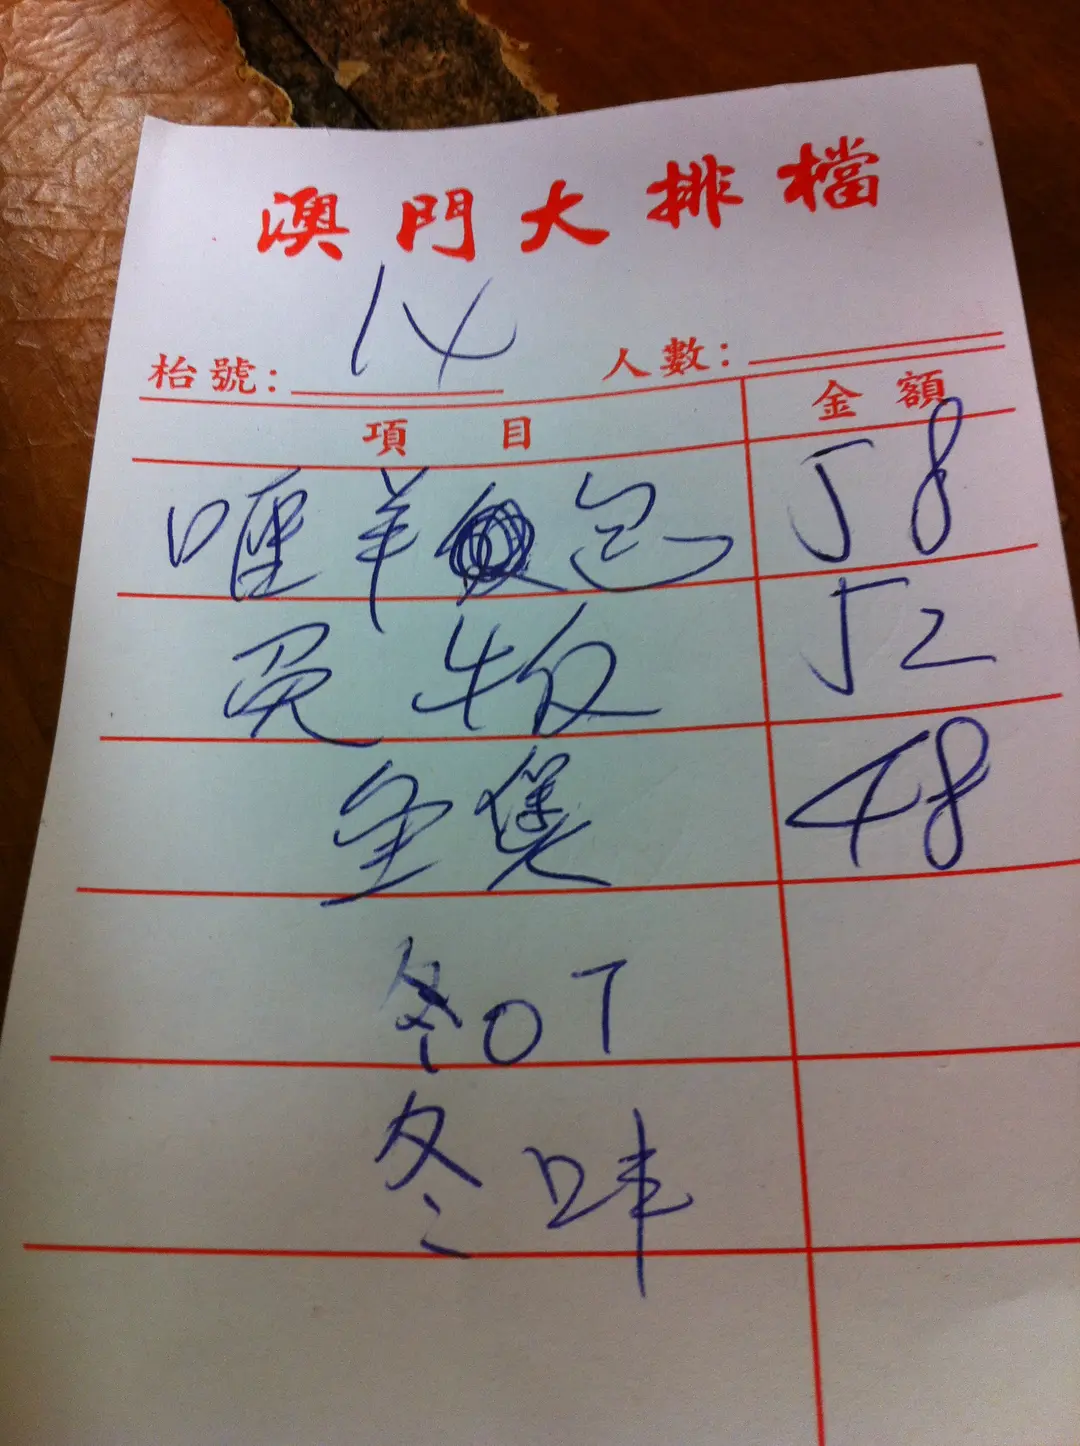 澳門大排檔
枱號: 14 人數:
項目 金額
喱羊包 58
免牛扒 52
魚煲 48
冬OT
冬啡